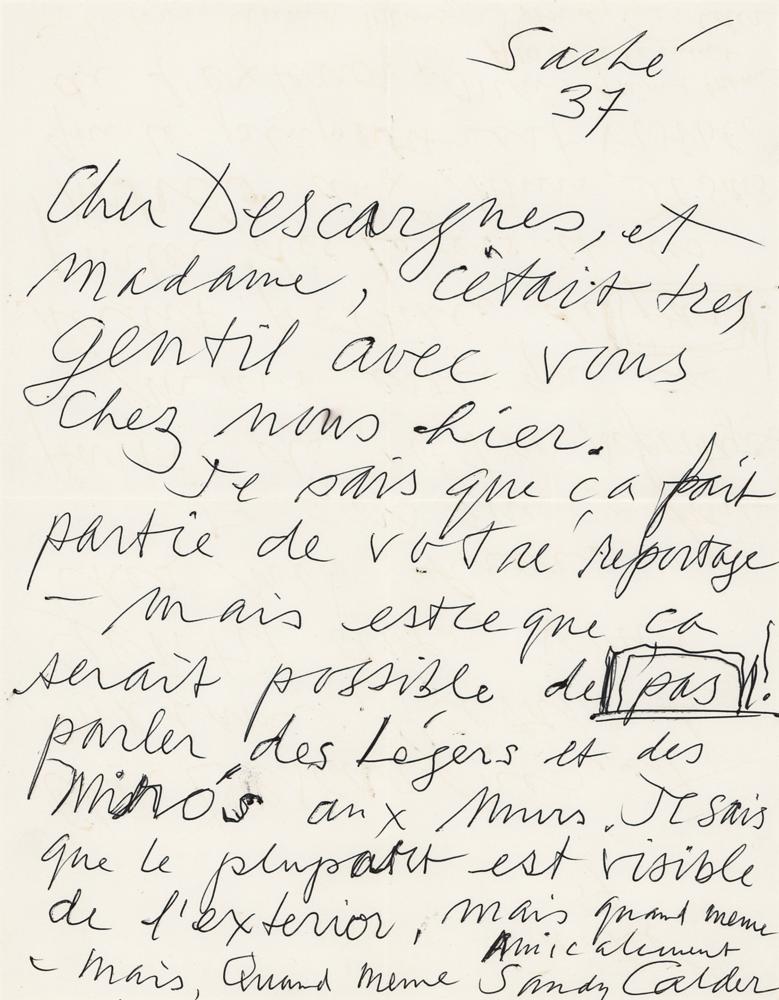 Saché
37
Cher Descargues, et
Madame, c'était tres
gentil avec vous
chez nous hier.
Je sais que ça fait
partie de votre reportage
- mais estce que ça
serait possible de pas!
parler des Légers et des
Miró's aux murs. Je sais
que le plupart est visible
de l'exterior, mais quand meme
- mais, Quand meme
Amicalement
Sandy Calder